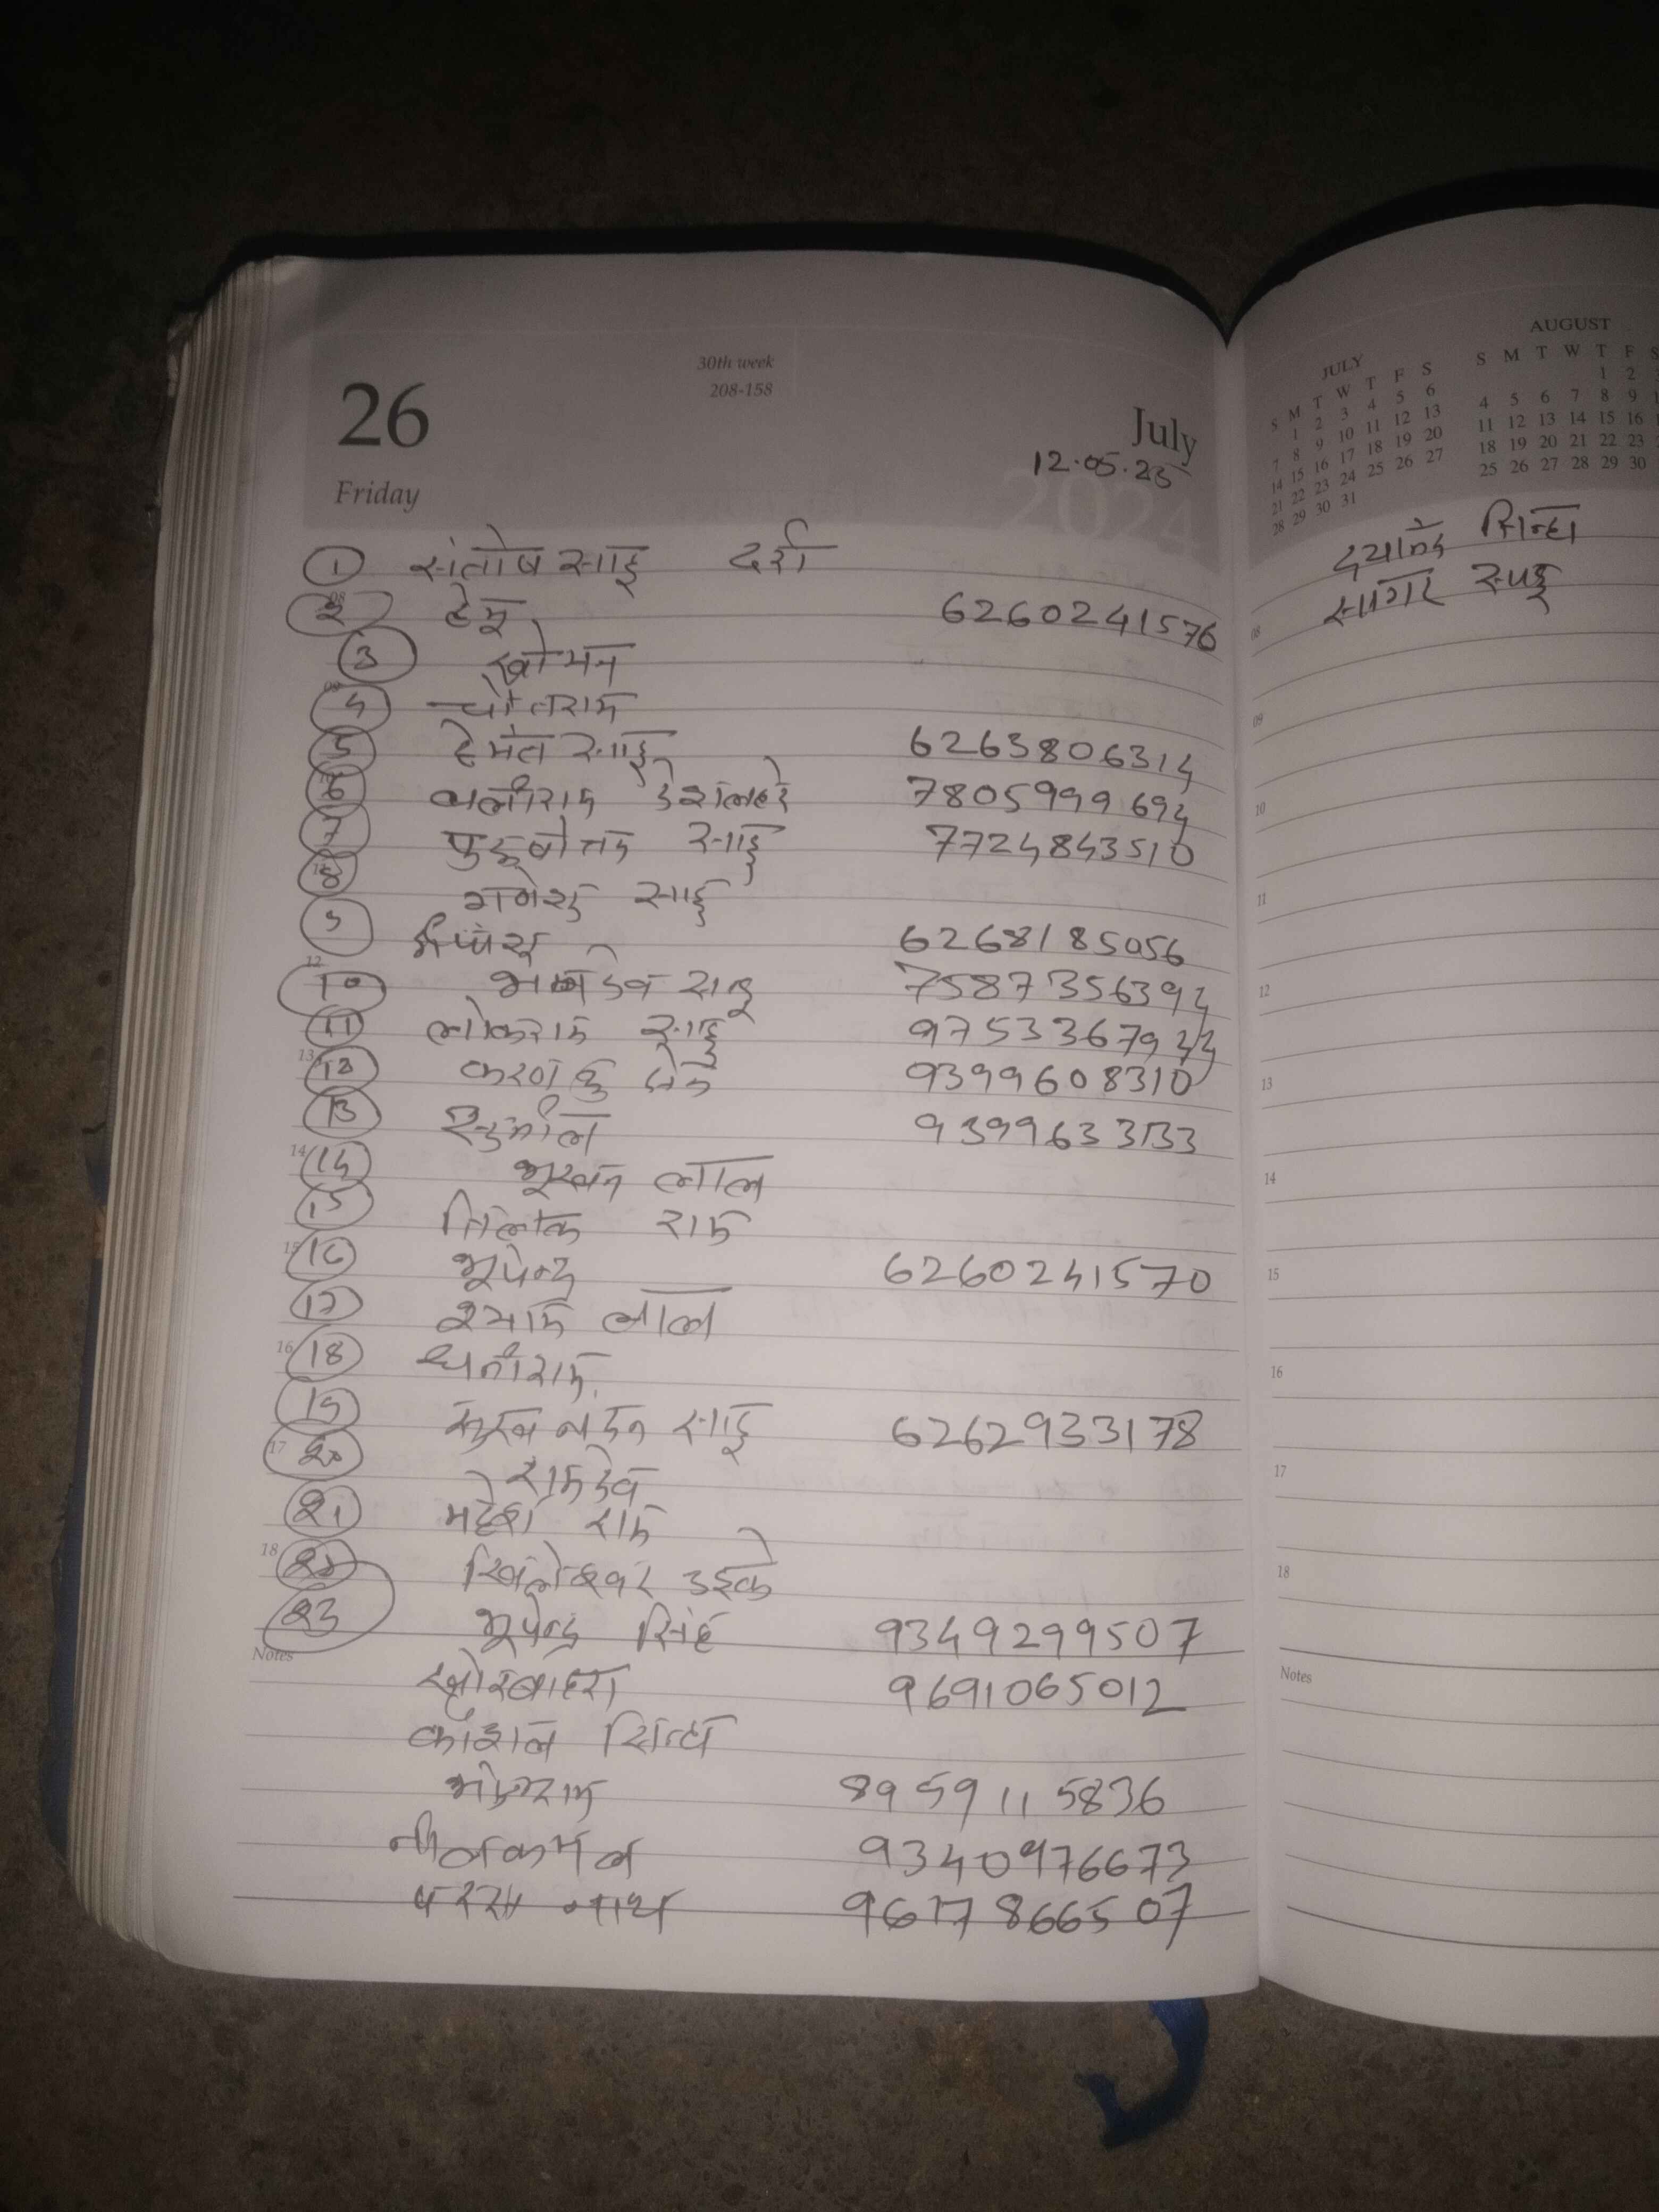 30th week
208-158
26
July
Friday
12.05.25
2024
1 संतोष साहू दर्रा
2 हेमू 6260241576
3 खोमन
4 चोतराम
5 हेमंत साहू 6263806314
6 बलीराम देशलहरे 7805999694
7 पुरूषोत्तम साहू 7724843510
8 गणेश साहू
9 6268185056
10 साहू 7587356394
11 लोकराम साहू 9753367944
12 करण कु 9399608310
13 सुनील 9399633133
14 भूखन लाल
15 तिलोक राम
16 भूपेन्द्र 6260241570
17 श्याम लाल
18 धनीराम
19 साहू 6262933178
20 रामदेव
21 महेश राम
22 खिलेश्वर उइके
23 भूपेन्द्र सिंह 9349299507
Notes
खोरबाहरा 9691065012
कौशल सिन्हा
8959115836
नीलकमल 9340976673
नाथ 9617866507
JULY
S M T W T F S
1 2 3 4 5 6
7 8 9 10 11 12 13
14 15 16 17 18 19 20
21 22 23 24 25 26 27
28 29 30 31
AUGUST
S M T W T F S
1 2
4 5 6 7 8 9
11 12 13 14 15 16
18 19 20 21 22 23
25 26 27 28 29 30
दयानंद सिन्हा
सागर साहू
08
09
10
11
12
13
14
15
16
17
18
Notes